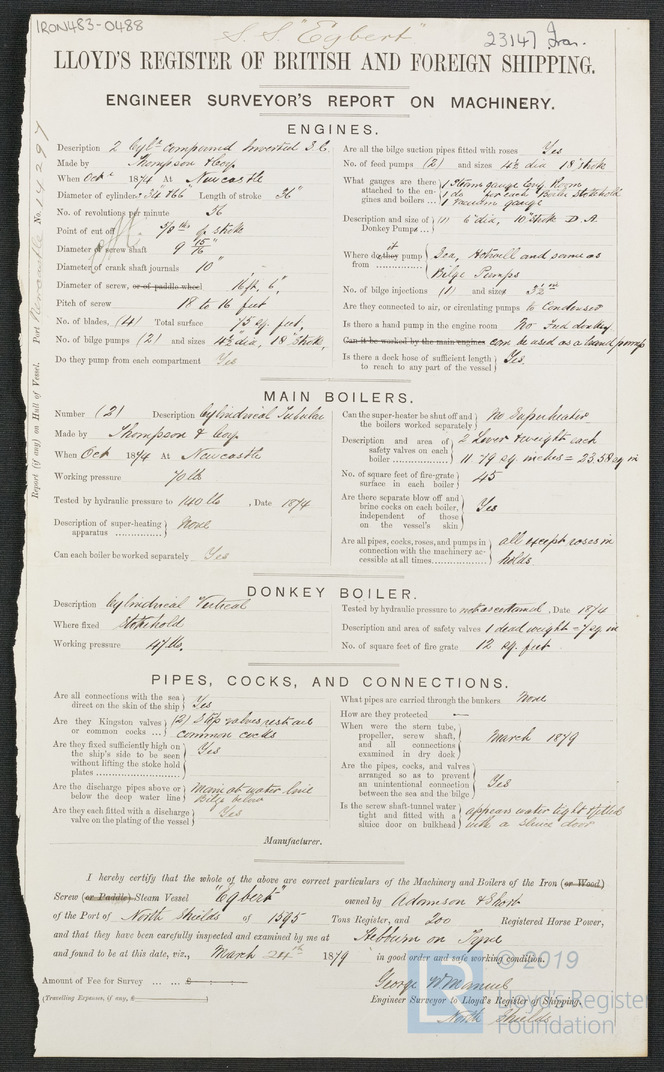 IRON483-0488
S.S. "Egbert"
23147 Iron.
LLOYD'S REGISTER OF BRITISH AND FOREIGN SHIPPING.
ENGINEER SURVEYOR'S REPORT ON MACHINERY.
Report (if any) on Hull of Vessel. Port Newcastle No. 14297
ENGINES.
Description 2 Cylr Compound Inverted S.C.
Made by Thompson & Coy
When Oct 1874 At Newcastle
Diameter of cylinders 34 "& 66" Length of stroke 36"
No. of revolutions per minute 56
Point of cut off 5/8ths of stroke
Diameter of screw shaft 9 15/16"
Diameter of crank shaft journals 10"
Diameter of screw, or of paddle wheel 16ft, 6"
Pitch of screw 18 to 16 feet
No. of blades, (4) Total surface 75 sq. feet,
No. of bilge pumps (2) and sizes 4½" dia, 18" stroke,
Do they pump from each compartment Yes
Are all the bilge suction pipes fitted with roses Yes
No. of feed pumps (2) and sizes 4½ dia 18" stroke
What gauges are there attached to the engines and boilers ...
1 Steam gauge Eng. Room
1 do for each Boiler Stokehold
1 Vacuum gauge
Description and size of Donkey Pumps ... (1) 6" dia, 10" stroke D.A.
Where does it they pump from ............ Sea, Hotwell and same as
Bilge Pumps
No. of bilge injections (1) and sizes 3½ in
Are they connected to air, or circulating pumps to Condenser
Is there a hand pump in the engine room No Ind donkey
Can it be worked by the main engines can be used as a hand pump
Is there a deck hose of sufficient length to reach to any part of the vessel Yes.
MAIN BOILERS.
Number (2) Description Cylindrical Tubular
Made by Thompson & Coy
When Oct 1874 At Newcastle
Working pressure 70 lb
Tested by hydraulic pressure to 140 lb, Date 1874
Description of super-heating apparatus ............... None
Can each boiler be worked separately Yes
Can the super-heater be shut off and the boilers worked separately No Superheater
Description and area of safety valves on each boiler ............... 2 Lever & weight each
11.79 sq inches = 23.58 sq in
No. of square feet of fire-grate surface in each boiler 45
Are there separate blow off and brine cocks on each boiler, independent of those on the vessel's skin Yes
Are all pipes, cocks, roses, and pumps in connection with the machinery accessible at all times............... all except roses in
holds
DONKEY BOILER.
Description Cylindrical Vertical
Where fixed Stokehold
Working pressure 47 lb,
Tested by hydraulic pressure to not ascertained, Date 1874
Description and area of safety valves 1 dead weight = 7 sq in
No. of square feet of fire grate 12 sq. feet
PIPES, COCKS, AND CONNECTIONS.
Are all connections with the sea direct on the skin of the ship Yes
Are they Kingston valves or common cocks ... (2) Stop valves rest are
common cocks
Are they fixed sufficiently high on the ship's side to be seen without lifting the stoke hold plates ........................... Yes
Are the discharge pipes above or below the deep water line Main at water line
Bilge below
Are they each fitted with a discharge valve on the plating of the vessel Yes
What pipes are carried through the bunkers None
How are they protected —
When were the stern tube, propeller, screw shaft, and all connections examined in dry dock March 1879
Are the pipes, cocks, and valves arranged so as to prevent an unintentional connection between the sea and the bilge Yes
Is the screw shaft-tunnel water tight and fitted with a sluice door on bulkhead appears water tight & fitted
with a sluice door
Manufacturer.
I hereby certify that the whole of the above are correct particulars of the Machinery and Boilers of the Iron (or Wood)
Screw (or Paddle) Steam Vessel "Egbert" owned by Adamson & Short
of the Port of North Shields of 1595 Tons Register, and 200 Registered Horse Power,
and that they have been carefully inspected and examined by me at Hebburn on Tyne
and found to be at this date, viz., March 24th 1879 in good order and safe working condition.
Amount of Fee for Survey ... ... £ : :
(Travelling Expenses, if any, £ )
George W Manuel
Engineer Surveyor to Lloyd's Register of Shipping.
North Shields
LR © 2019
Lloyd's Register
Foundation